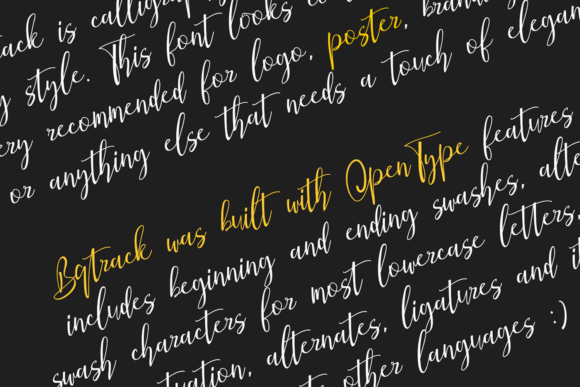 tack is calligraphy
style. This font looks
recommended for logo, poster,
or anything else that needs a touch of
Bqtrack was built with OpenType features
includes beginning and ending swashes,
swash characters for most lowercase letters,
alternates, ligatures and
other languages :)